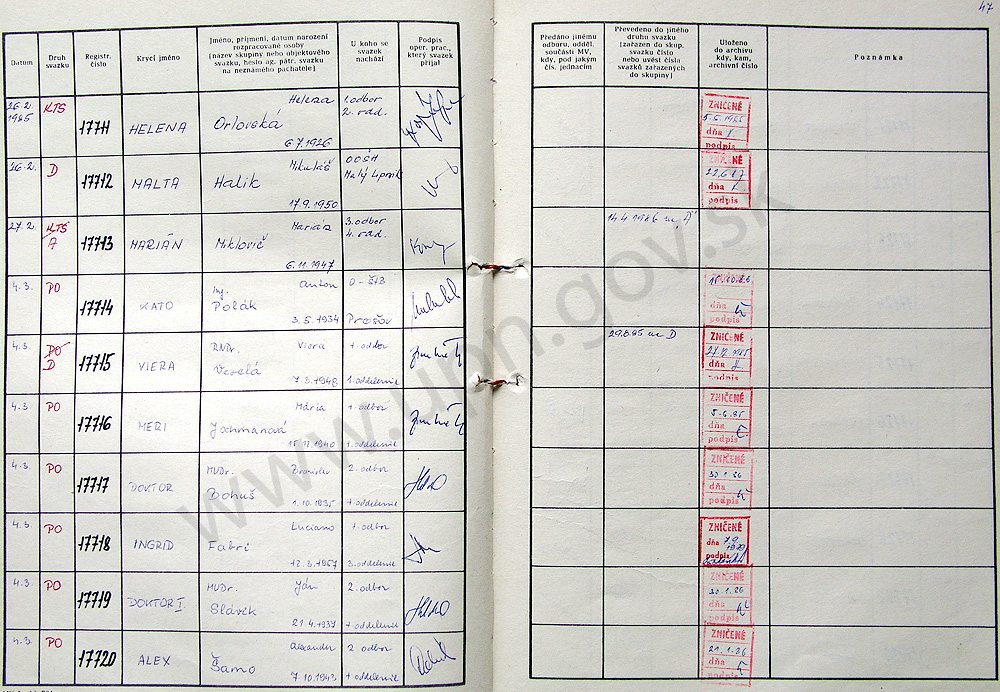 47
Datum
Druh svazku
Registr. číslo
Krycí jméno
Jméno, příjmení, datum narození
rozpracované osoby
(název skupiny nebo objektového
svazku, heslo ag. pátr. svazku
na neznámého pachatele)
U koho se
svazek
nachází
Podpis
oper. prac.,
který svazek
přijal
Předáno jinému
odboru, odděl.
součásti MV,
kdy, pod jakým
čís. jednacím
Převedeno do jiného
druhu svazku
(zařazen do skup.
svazku číslo
nebo uvést čísla
svazků zařazených
do skupiny)
Uloženo
do archivu
kdy, kam,
archivní číslo
Poznámka
26.2. 1985 KTS 17711 HELENA Helena Orlovská 6.7.1926 1. odbor 2. rad.
ZNIČENÉ
dňa
podpis
26.2. D 17712 MALTA Mikuláš Halik 17.9.1950 OOŠH Malý Lipník
ZNIČENÉ
22.6.87
dňa
podpis
27.2. KTS A 17713 MARIÁN Marián Miklovič 6.11.1947 3. odbor 4. rad.
14.4.1986
4.3. PO 17714 KATO Ing. Anton Polák 3.5.1934 O-ŠtB Prešov
dňa
podpis
4.3. PO D 17715 VIERA RNDr. Viera Veselá 7.3.1948 1. odbor 1. oddelenie
29.8.85 D
ZNIČENÉ
dňa
podpis
4.3. PO 17716 MERI Mária Jochmanová 15.12.1940 1. odbor 1. oddelenie
ZNIČENÉ
5.6.85
dňa
podpis
4.3. PO 17717 DOKTOR MUDr. Bronislav Bohuš 1.10.1935 2. odbor 1. oddelenie
ZNIČENÉ
30.1.86
dňa
podpis
4.3. PO 17718 INGRID Luciano Fabri 12.3.1957 1. odbor 3. oddelenie
ZNIČENÉ
dňa
podpis
4.3. PO 17719 DOKTOR I. MUDr. Ján Slávik 21.4.1937 2. odbor 1. oddelenie
ZNIČENÉ
30.1.86
dňa
podpis
4.3. PO 17720 ALEX Alexander Šamo 7.10.1943 2. odbor 1. oddelenie
ZNIČENÉ
21.1.86
dňa
podpis
www.upn.gov.sk